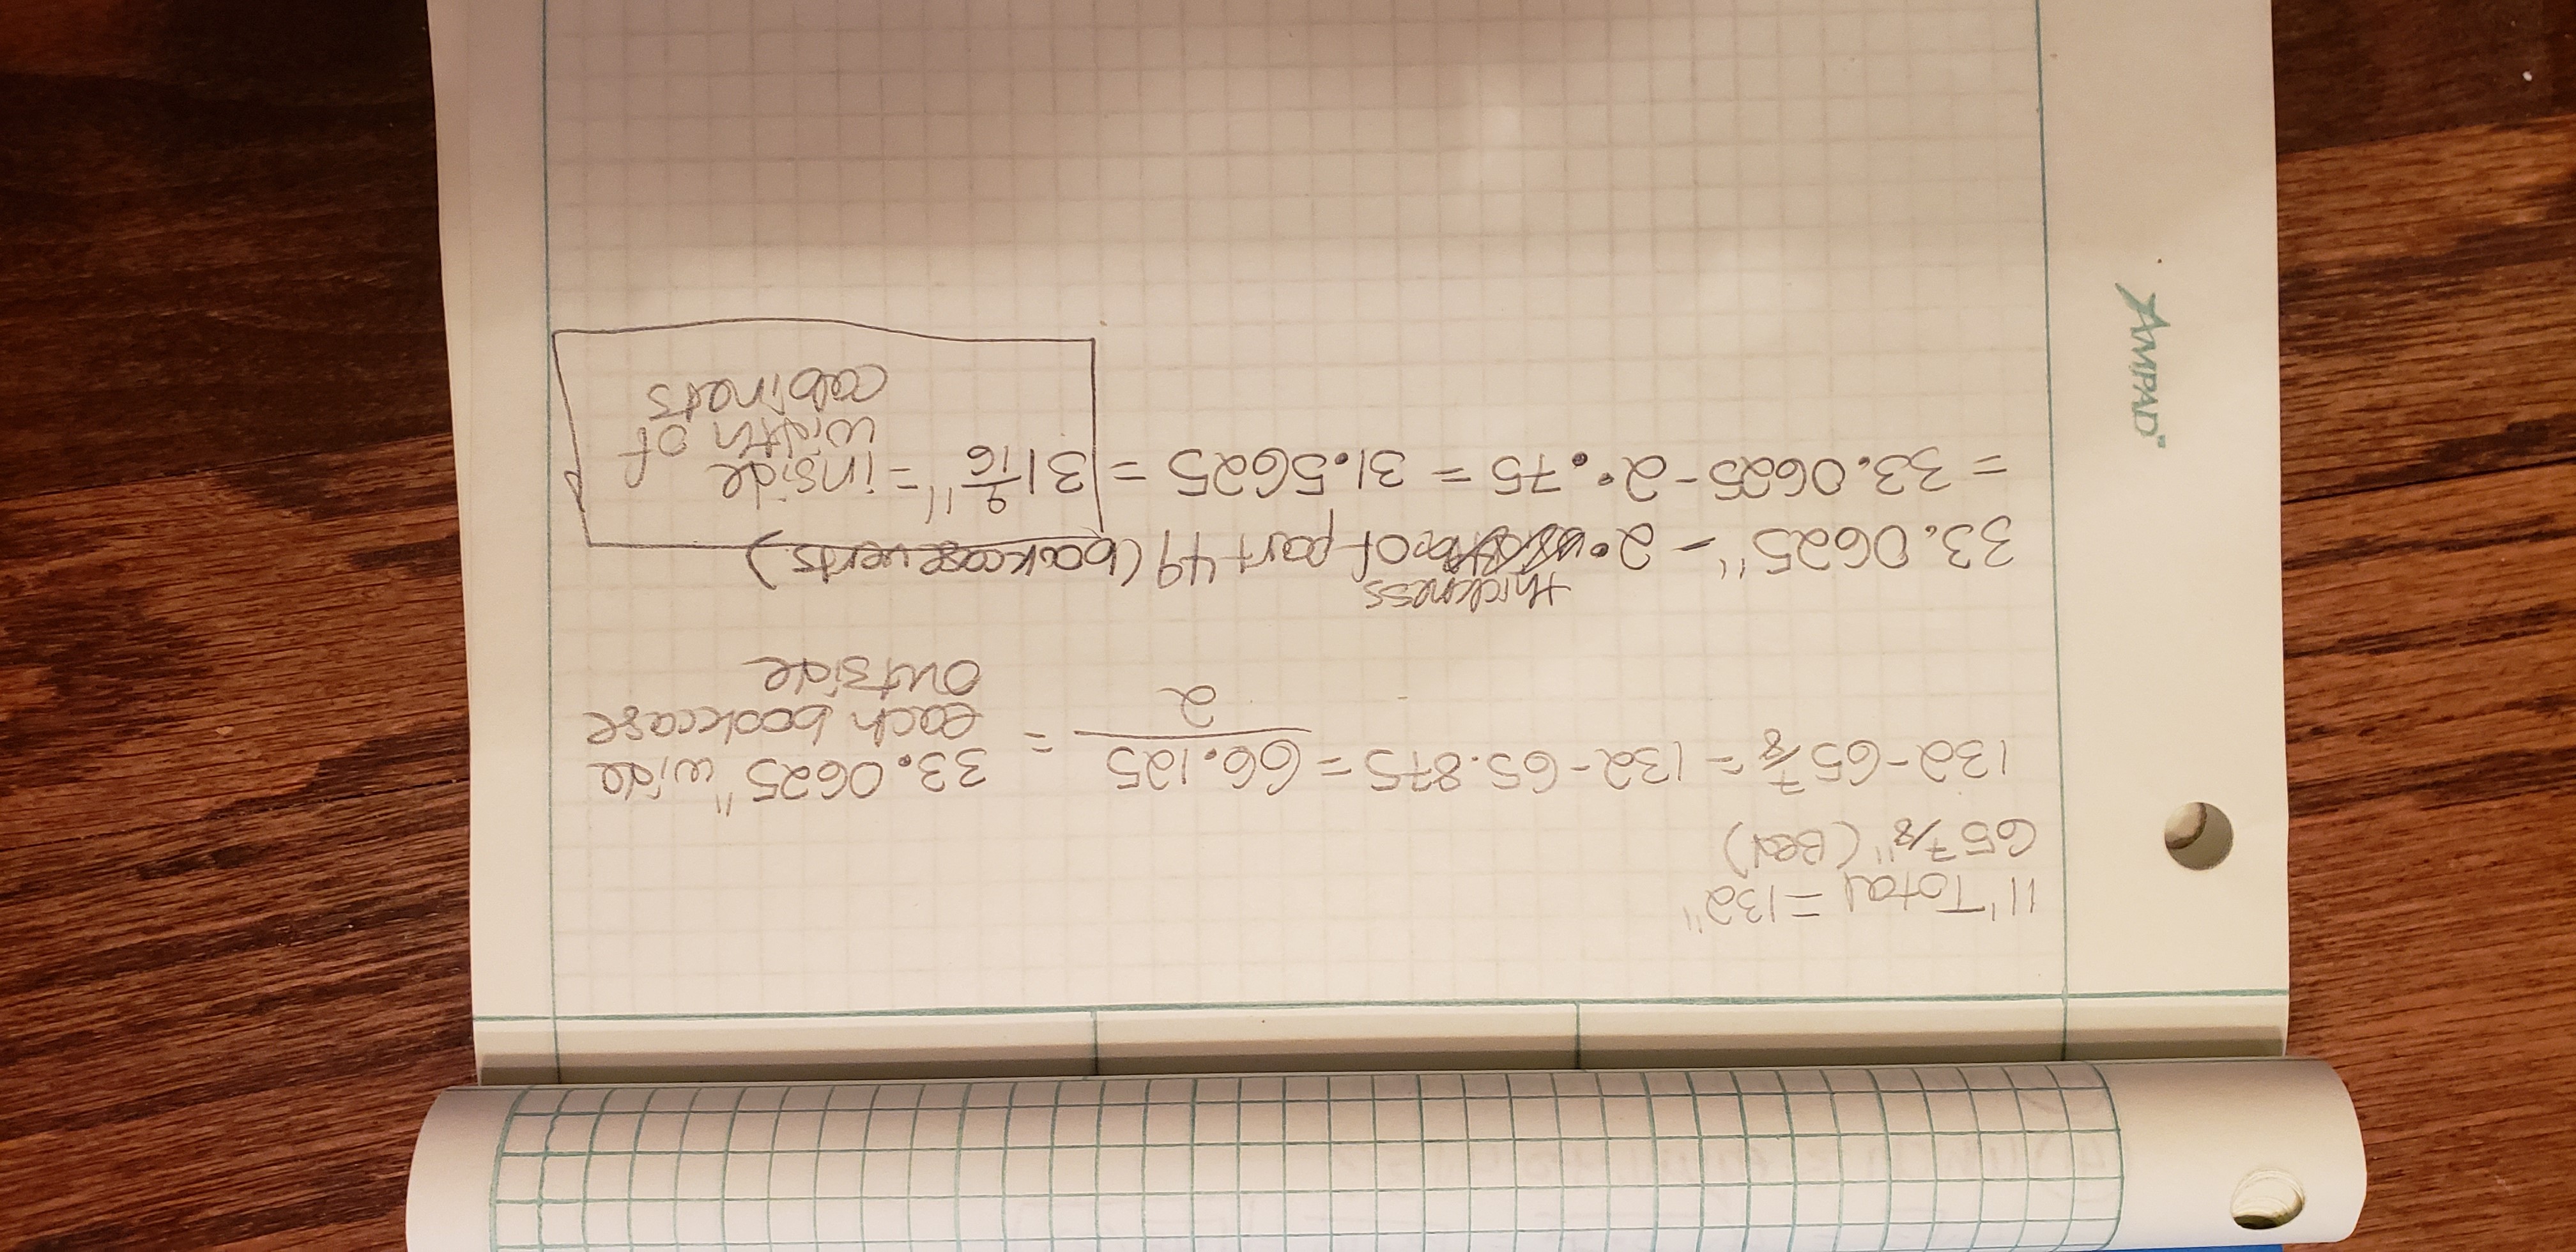 11' Total = 132"
65 7/8" (Bed)
132 - 65 7/8 = 132 - 65.875 = 66.125 / 2 = 33.0625" wide
each bookcase
outside
thickness
33.0625" - 2 • of part 49 (bookcase verts)
= 33.0625 - 2 • .75 = 31.5625 = 31 9/16" = inside
width of
cabinets
AMPAD